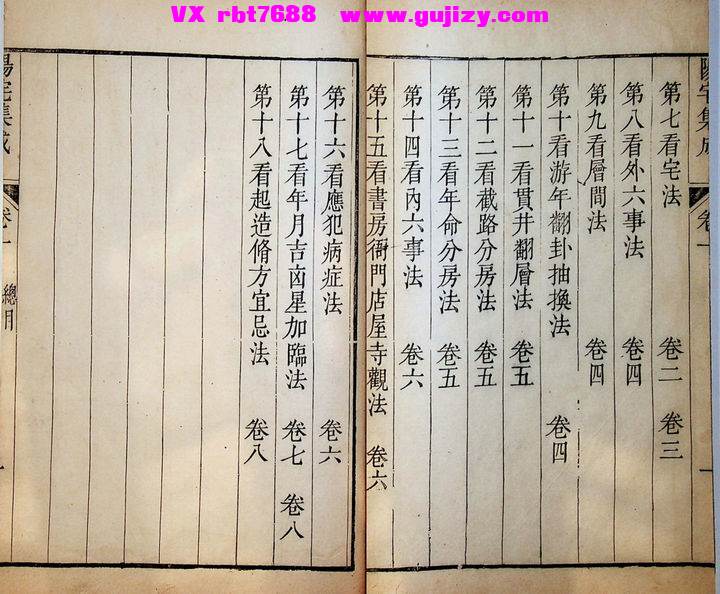 VX rbt7688 www.gujizy.com
陽宅集成 卷一
第七看宅法 卷二 卷三
第八看外六事法 卷四
第九看層間法 卷四
第十看游年翻卦抽換法 卷四
第十一看貫井翻層法 卷五
第十二看截路分房法 卷五
第十三看年命分房法 卷五
第十四看內六事法 卷六
第十五看書房衙門店屋寺觀法 卷六
第十六看應犯病症法 卷六
第十七看年月吉凶星加臨法 卷七 卷八
第十八看起造脩方宜忌法 卷八
陽宅集成 卷一 總目